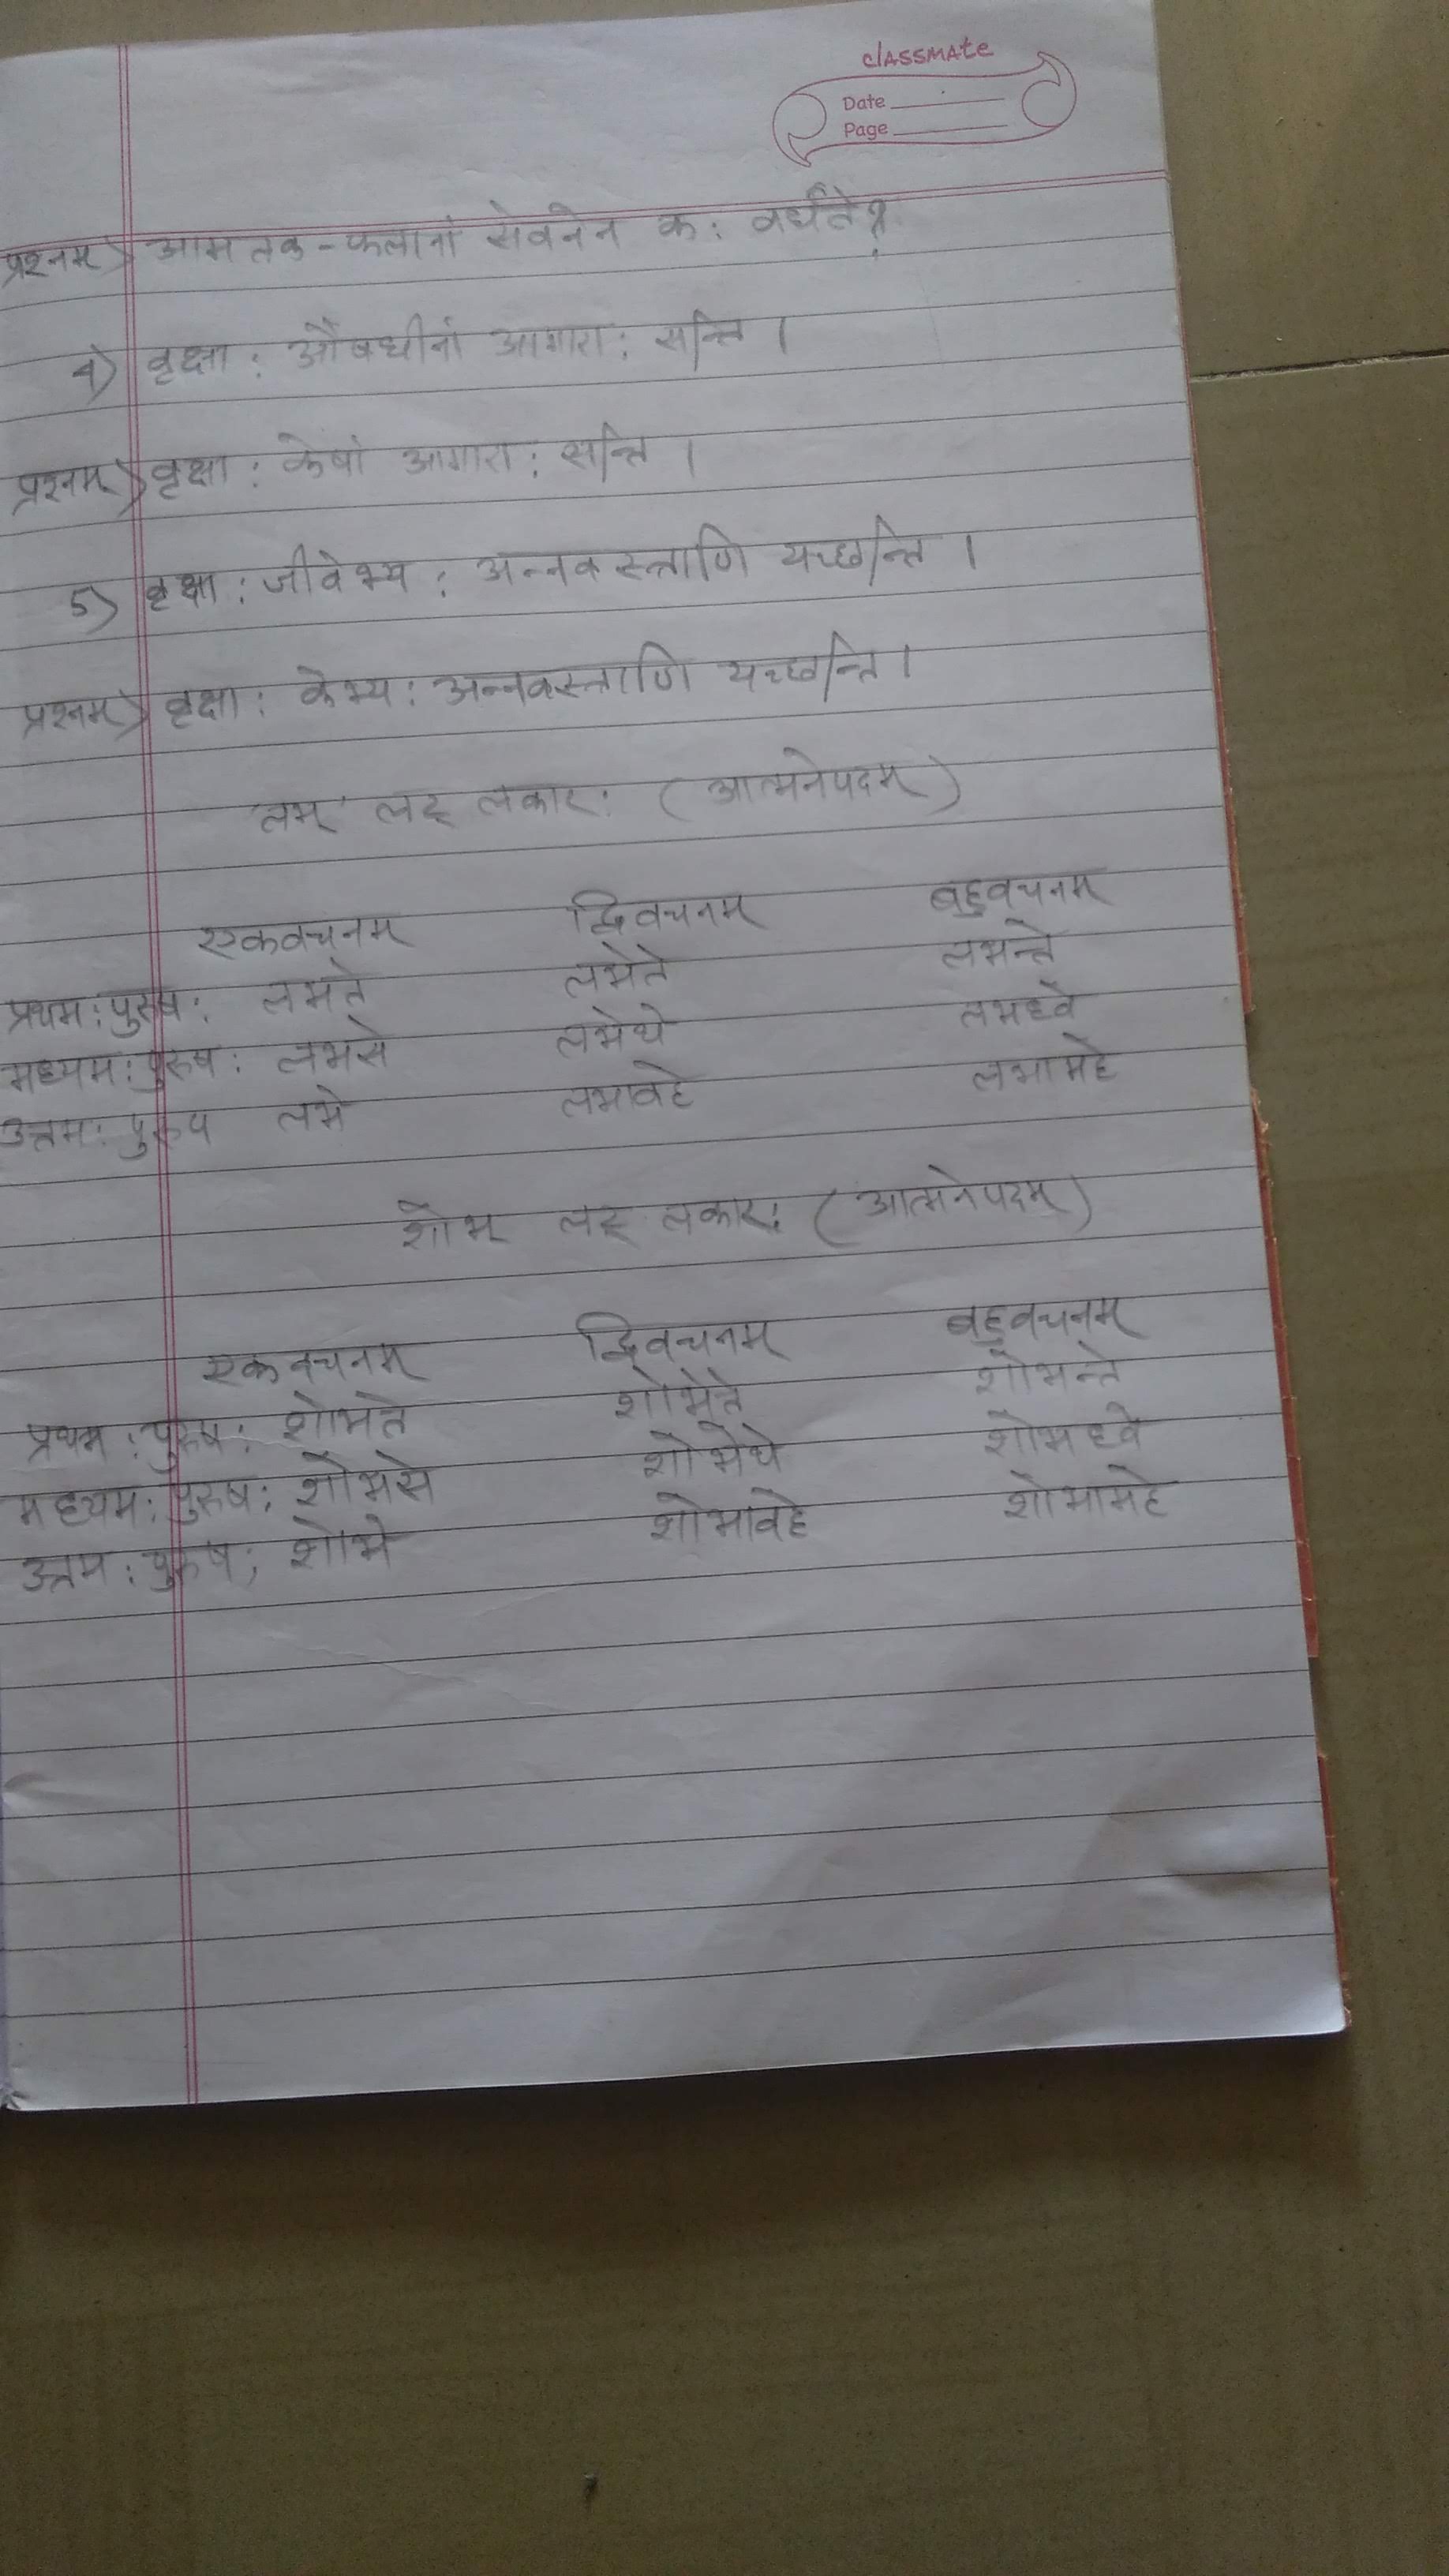 classmate
Date
Page
प्रश्नम्) आमलक-फलानां सेवनेन कः वर्धते?
4) वृक्षाः औषधीनां आगाराः सन्ति ।
प्रश्नम्) वृक्षाः केषां आगाराः सन्ति ।
5) वृक्षाः जीवेभ्यः अन्नवस्त्राणि यच्छन्ति ।
प्रश्नम्) वृक्षाः केभ्यः अन्नवस्त्राणि यच्छन्ति ।
'लभ्' लट् लकारः (आत्मनेपदम्)
एकवचनम् द्विवचनम् बहुवचनम्
प्रथमः पुरुषः लभते लभेते लभन्ते
मध्यमः पुरुषः लभसे लभेथे लभध्वे
उत्तमः पुरुष लभे लभावहे लभामहे
शोभ् लट् लकारः (आत्मनेपदम्)
एकवचनम् द्विवचनम् बहुवचनम्
प्रथमः पुरुषः शोभते शोभेते शोभन्ते
मध्यमः पुरुषः शोभसे शोभेथे शोभध्वे
उत्तमः पुरुषः शोभे शोभावहे शोभामहे